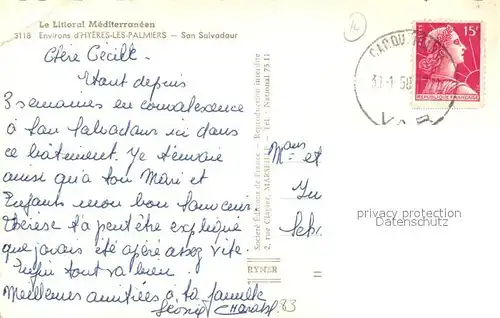 Le Littoral Méditerranéen
3118 Environs d'HYÈRES-LES-PALMIERS — San Salvadour
Chère Cécile.
Etant depuis
3 semaines en convalescence
à San Salvadour ici dans
ce bâtiment. Je t'envoie
ainsi qu'à ton Mari et
Enfants mon bon souvenir
Thérèse t'a peut être expliqué
que j'avais été opéré assez vite.
Enfin tout va bien.
Meilleures amitiées à ta famille
Société Editions de France — Reproduction interdite
2, rue Clapier, MARSEILLE — Tél. National 75.11
RYNER
M et
83
15F
REPUBLIQUE FRANÇAISE
VAR
privacy protection
Datenschutz